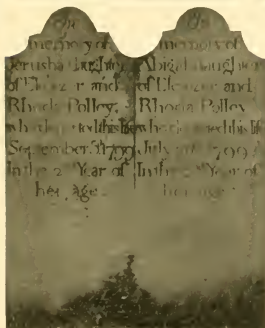 In
memory of
Jerusha daughter
of Elenzer and
Rhoda Polley,
who departed this life
September 1799
In the 2 Year of
her age.
In
memory of
Abigal daughter
of Elenzer and
Rhoda Polley
who departed this life
July 1799
In the Year of
her age.